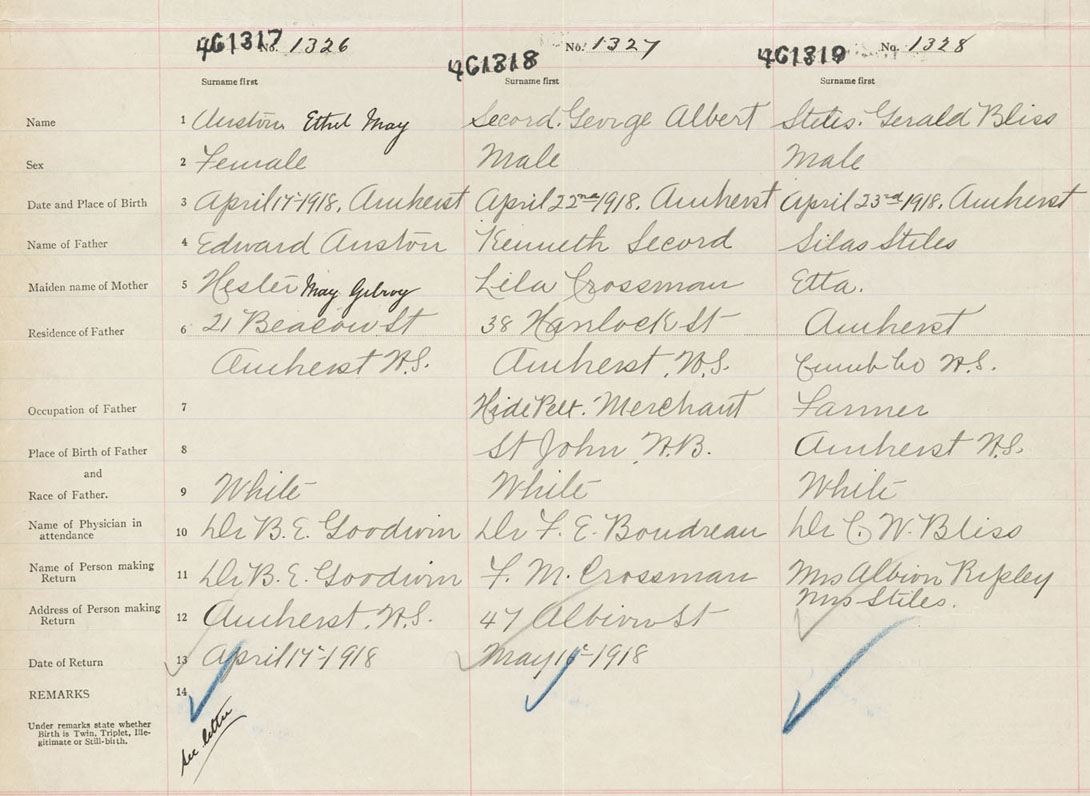 461317 No. 1326 461318 No. 1327 461319 No. 1328
Surname first Surname first Surname first
Name 1 Auston Ethel May Secord. George Albert Stiles. Gerald Bliss
Sex 2 Female Male Male
Date and Place of Birth 3 April 1918, Amherst April 22nd 1918. Amherst April 23rd 1918, Amherst
Name of Father 4 Edward Auston Kenneth Secord Silas Stiles
Maiden name of Mother 5 Hester May Gilroy Lila Crossman Etta.
Residence of Father 6 21 Beacon St 38 Hanlock St Amherst
Amherst N.S. Amherst, N.S. Cumb Co N.S.
Occupation of Father 7 Hide Pelt. Merchant Farmer
Place of Birth of Father 8 St John, N.B. Amherst N.S.
and
Race of Father. 9 White White White
Name of Physician in attendance 10 Dr B. E. Goodwin Dr F. E. Boudreau Dr C. W. Bliss
Name of Person making Return 11 Dr B. E. Goodwin F. M. Crossman Mrs Albion Ripley
Mrs Stiles.
Address of Person making Return 12 Amherst, N.S. 47 Albion St
Date of Return 13 April 1918 May 1918
REMARKS 14
Under remarks state whether
Birth is Twin, Triplet, Ille-
gitimate or Still-birth.
see letter